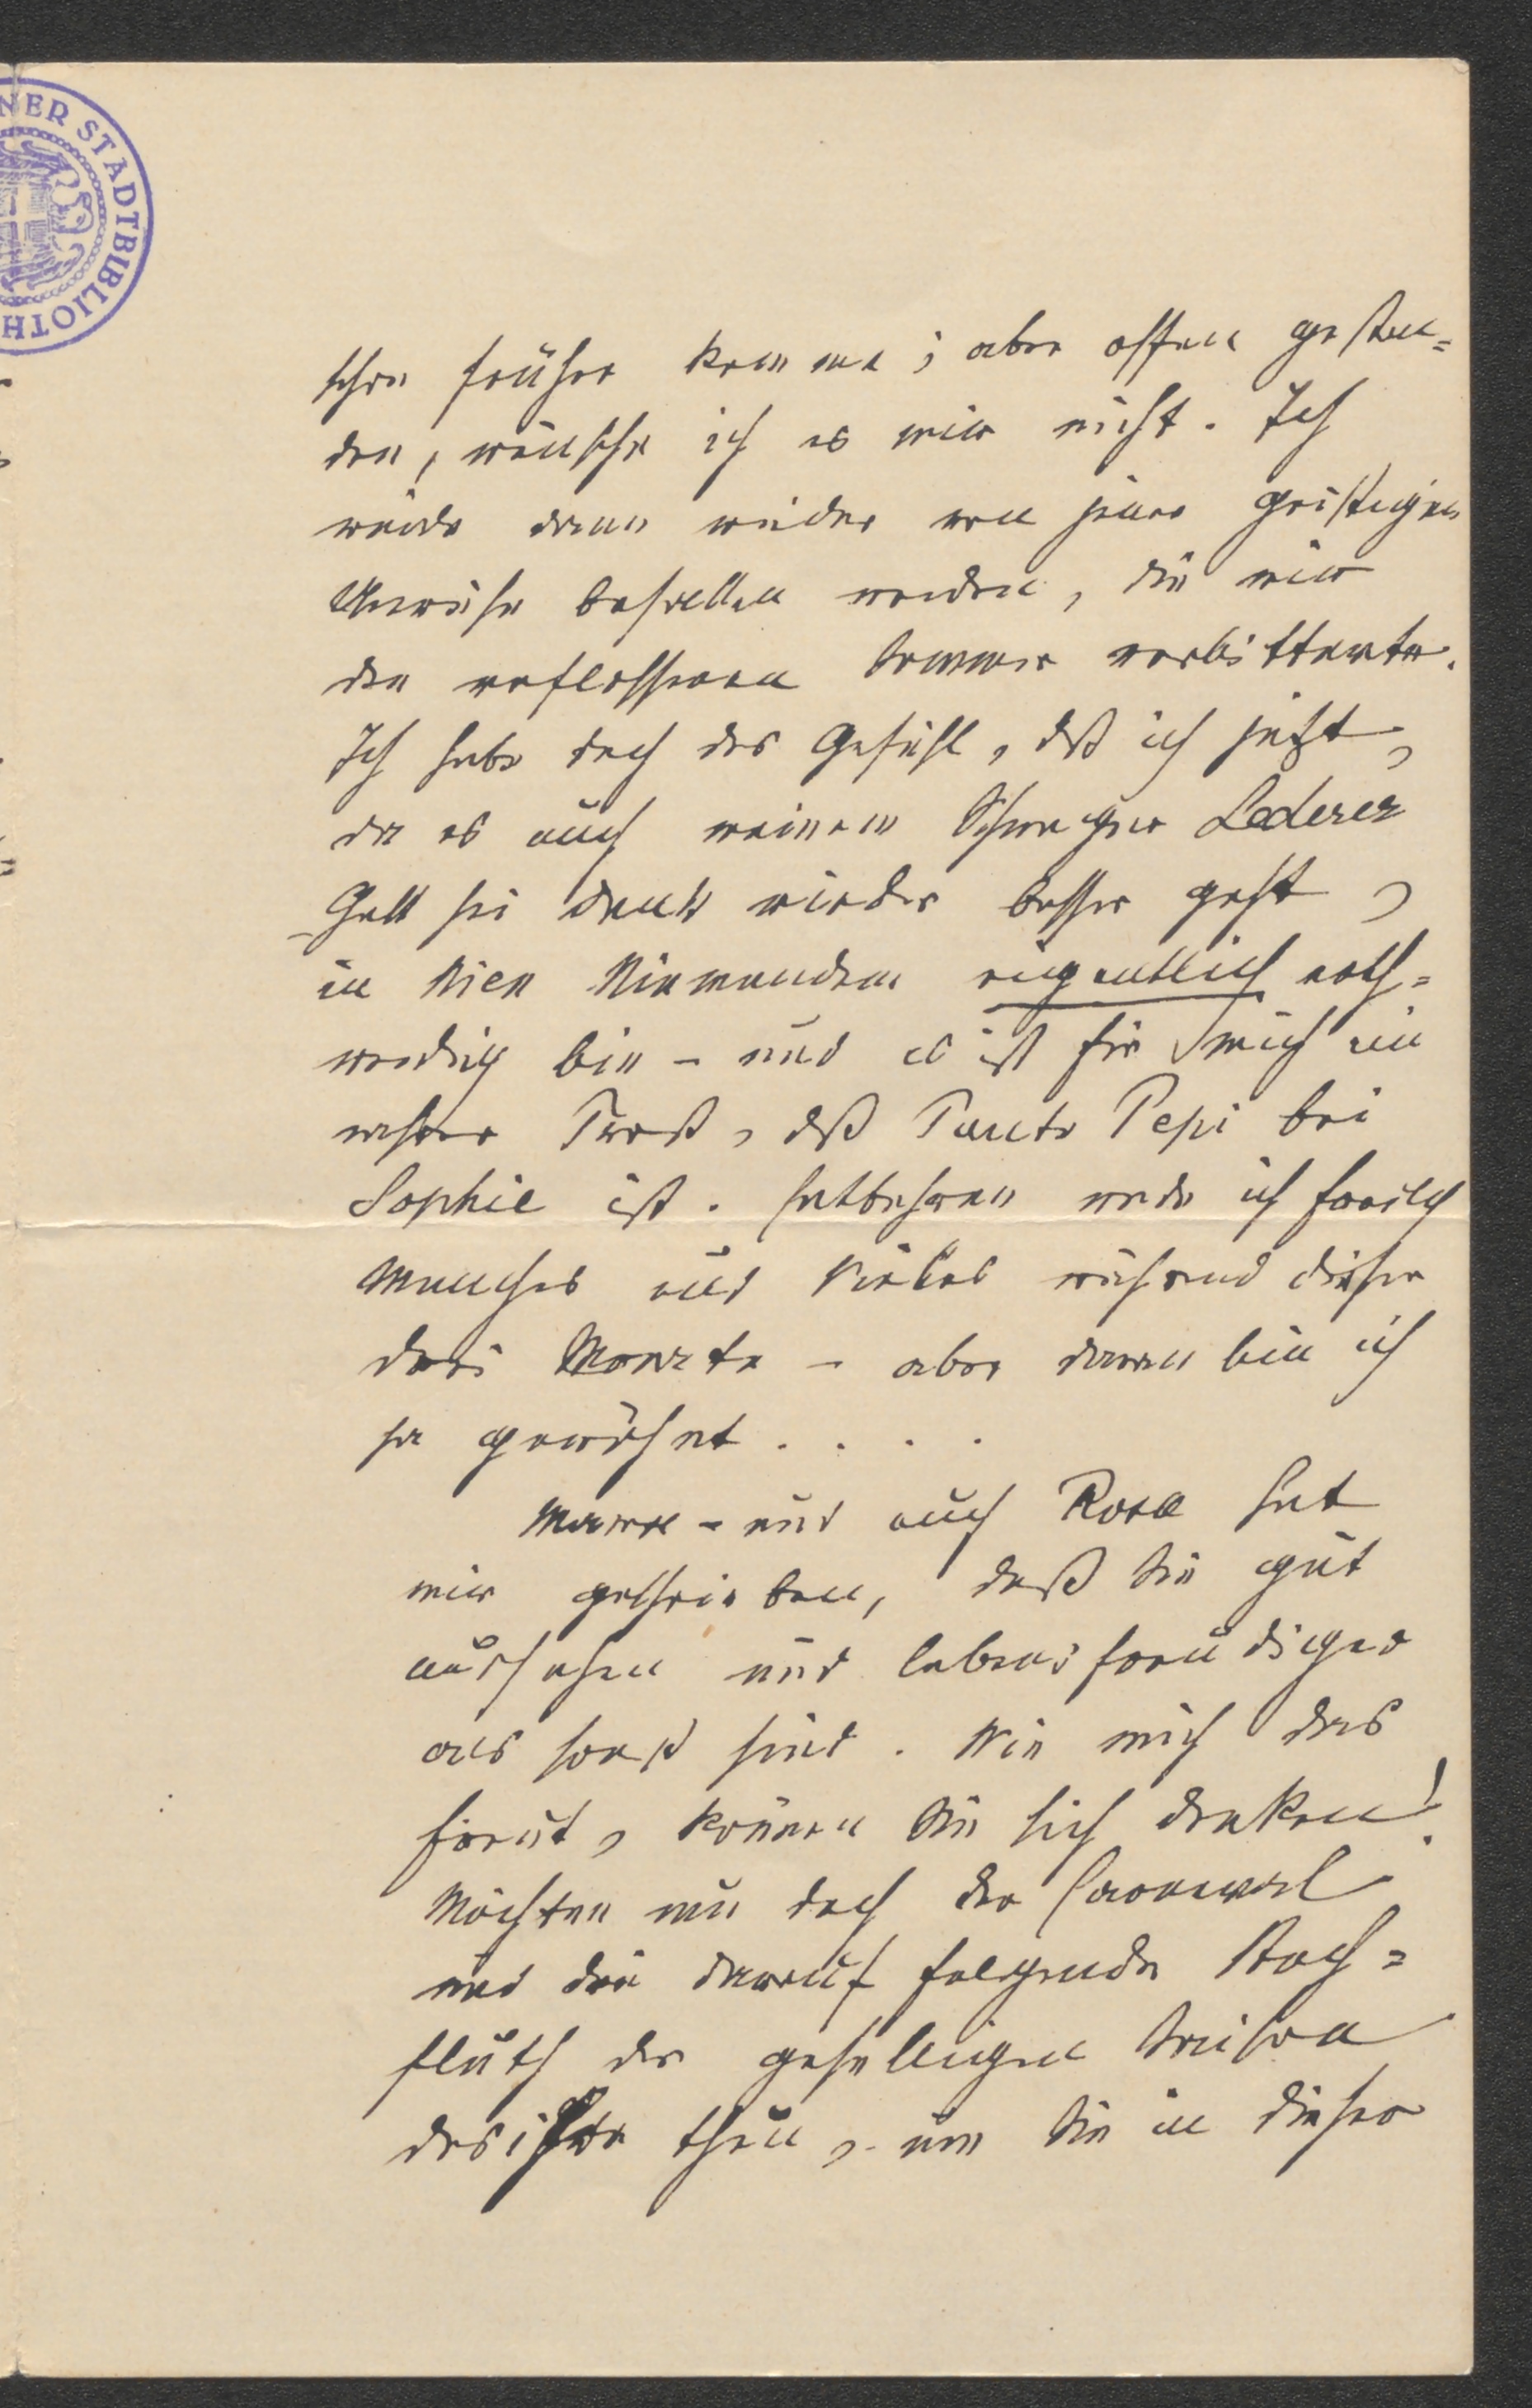 NER STADTBIBLIOTH
schon früher komme; aber offen gestan=
den, wünsche ich es mir nicht. Ich
würde dann wieder von jener geistigen
Unruhe befallen werden, die mir
den verflossenen Sommer verbitterte.
Ich habe doch das Gefühl, dß ich jetzt,
da es auch meinem Schwager Lederer
Gott sei Dank wieder besser geht,
in Wien Niemandem eigentlich noth=
wendig bin – und es ist für mich ein
wahrer Trost, dß Tante Pepi bei
Sophie ist. Entbehren werde ich freilich
Manches und Vieles während dieser
drei Monate – aber daran bin ich
ja gewöhnt . . . .
und auch Rosa hat
mir geschrieben, daß Sie gut
aussehen und lebensfreudiger
als sonst sind. Wie mich das
freut, können Sie sich denken!
Möchten nun doch der Carneval
und die darauf folgende Hoch=
fluth der geselligen Saison
das ihre thun, um Sie in dieser